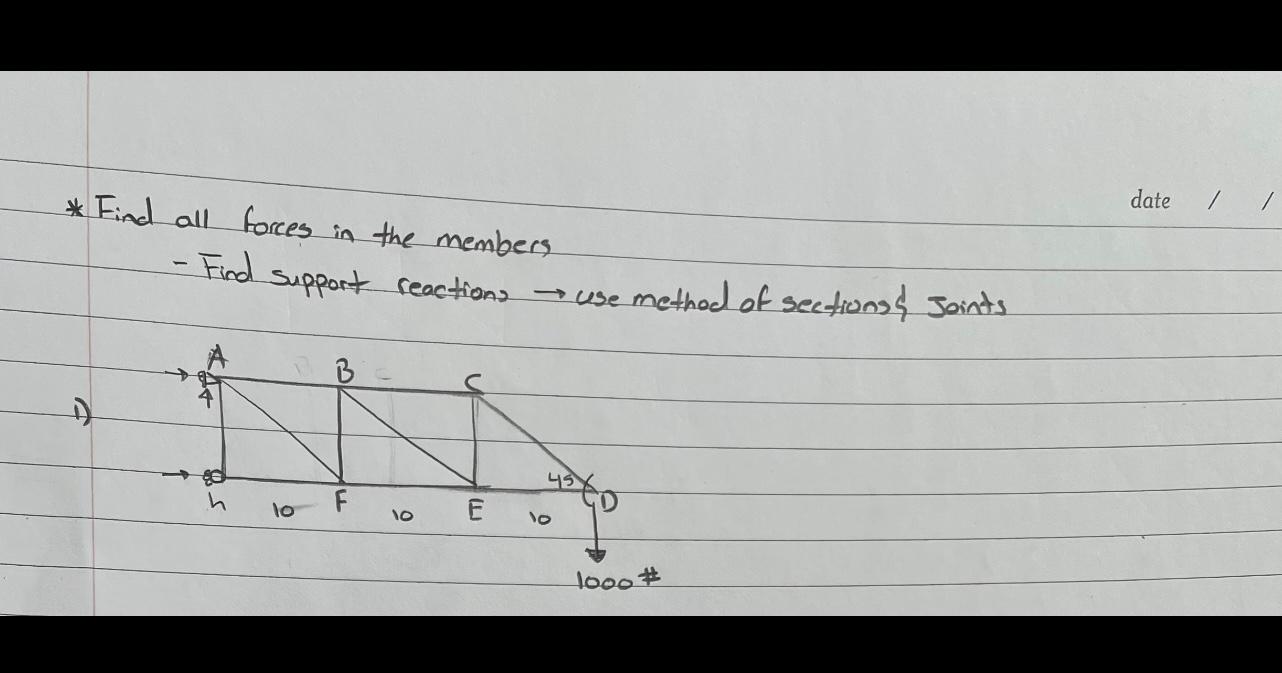 date / /
* Find all forces in the members
- Find support reactions → use method of sections & Joints
1)
A B C
45 D
h 10 F 10 E 10
1000 #